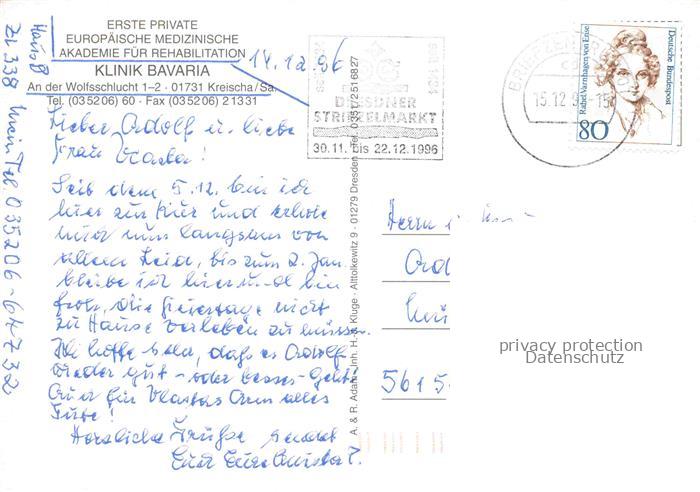 ERSTE PRIVATE
EUROPÄISCHE MEDIZINISCHE
AKADEMIE FÜR REHABILITATION
KLINIK BAVARIA
An der Wolfsschlucht 1–2 · 01731 Kreischa/Sa.
Tel. (03 52 06) 60 · Fax (03 52 06) 2 13 31
Haus B
Zi 338 Mein Tel. 035206-64732
14.12.96
Lieber Adolf u. liebe
Frau !
Seit dem 5.12. bin ich
hier zur Kur und erhole
mich nun langsam von
allem Leid, bis zum 2. Jan.
bleibe ich hier und bin
froh, die Feiertage nicht
zu Hause verleben zu müssen.
Ich hoffe sehr, daß es Adolf
wieder gut - oder besser - geht!
Auch für Vlastas Arm alles
Gute!
Herzliche Grüße sendet
Euch Eure
DRESDNER
STRIEZELMARKT
30.11. bis 22.12.1996
A. & R. Adam · Inh. H.-J. Kluge · Alttolkewitz 9 · 01279 Dresden · Tel. 0351/2516827
BRIEFZENTRUM
15.12.9 -15
Rahel Varnhagen von Ense
Deutsche Bundespost
80
Herrn
5615
privacy protection
Datenschutz